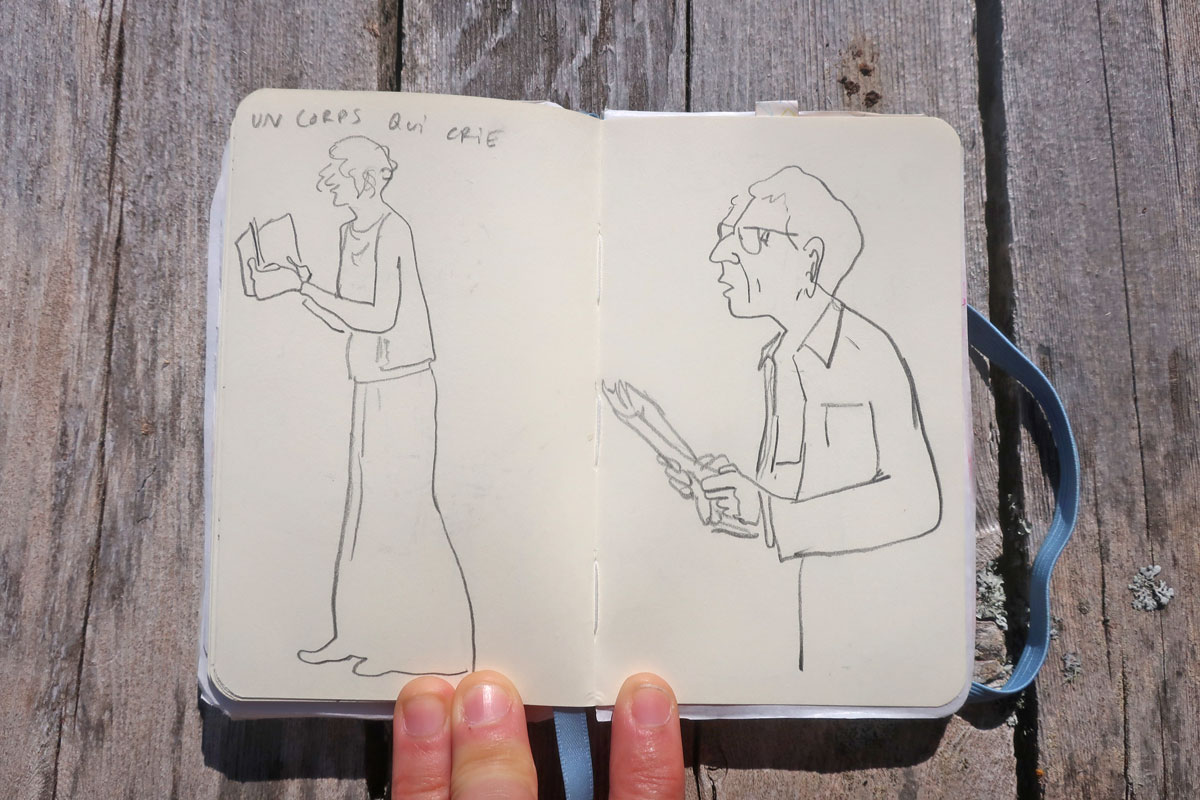 UN CORPS QUi CRiE